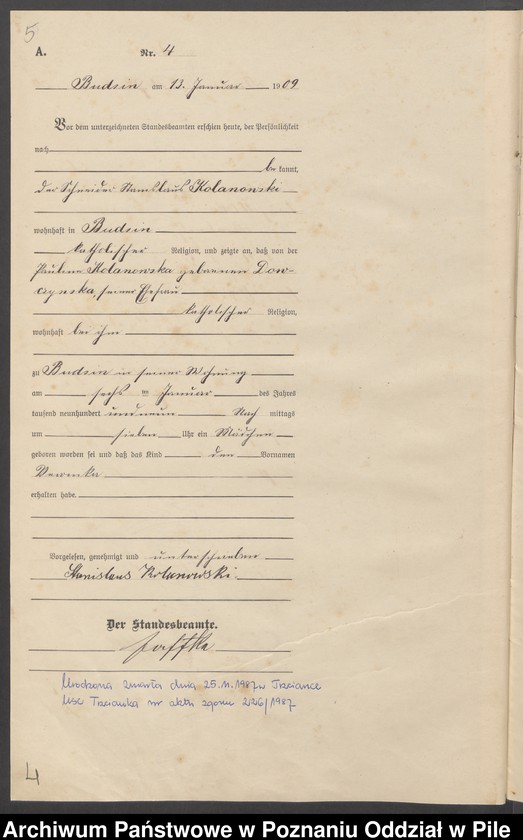 5
A.
Nr. 4
Budsin am 13. Januar 1909
Vor dem unterzeichneten Standesbeamten erschien heute, der Persönlichkeit
nach
be kannt,
der Schneider Stanislaus Kolanowski
wohnhaft in Budsin
katholischer Religion, und zeigte an, daß von der
Pauline Kolanowska geborenen
seiner Ehefrau
katholischer Religion,
wohnhaft bei ihm
zu Budsin in seiner Wohnung
am sechs ten Januar des Jahres
tausend neunhundert und neun Nach mittags
um sieben Uhr ein Mädchen
geboren worden sei und daß das Kind den Vornamen
erhalten habe.
Vorgelesen, genehmigt und unterschrieben
Stanislaus Kolanowski
Der Standesbeamte.
Urodzona zmarła dnia 25.11.1987 w Trzciance
USC Trzcianka nr aktu zgonu 226/1987
4
Archiwum Państwowe w Poznaniu Oddział w Pile